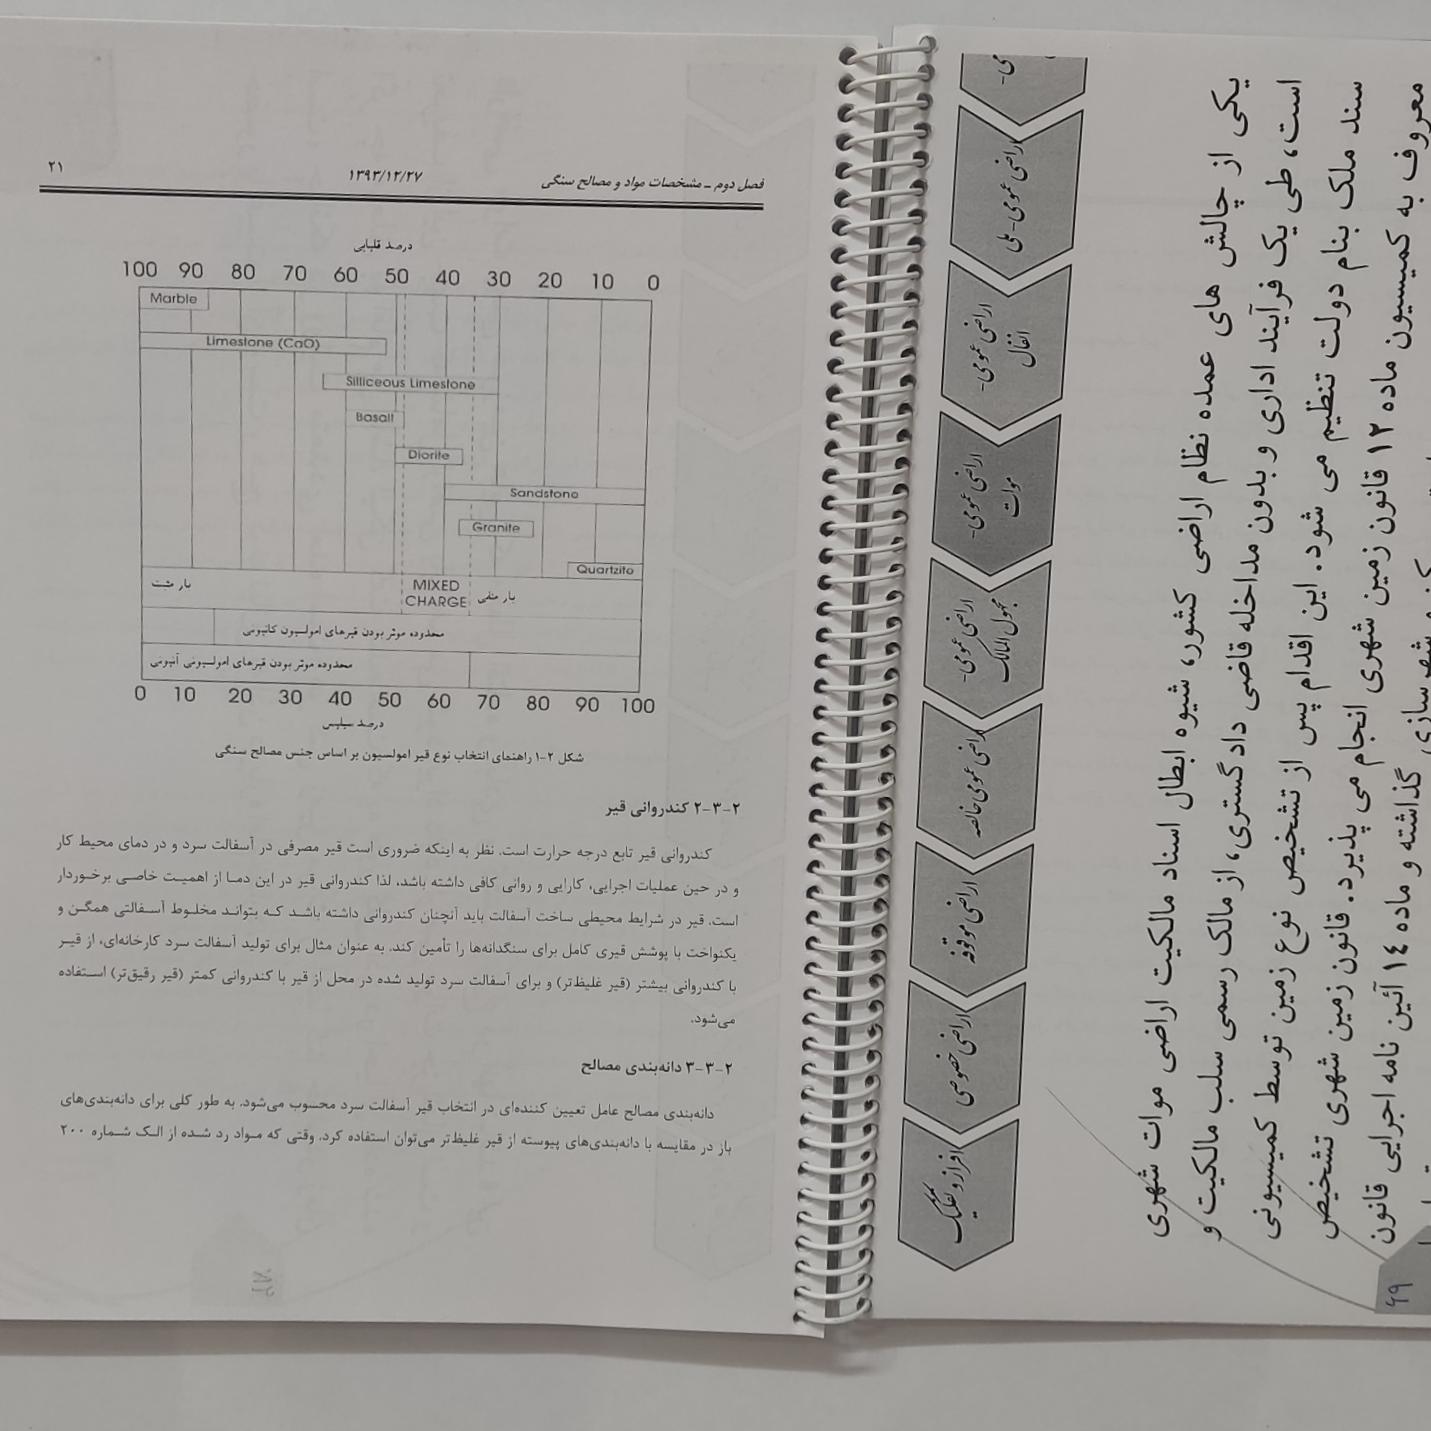 فصل دوم ـ مشخصات مواد و مصالح سنگی
۱۳۹۳/۱۲/۲۷
۲۱
درصد قلیایی
100 90 80 70 60 50 40 30 20 10 0
Marble
Limestone (CaO)
Silliceous Limestone
Basalt
Diorite
Sandstone
Granite
Quartzite
بار مثبت
MIXED
CHARGE
بار منفی
محدوده موثر بودن قیرهای امولسیون کاتیونی
محدوده موثر بودن قیرهای امولسیونی آنیونی
0 10 20 30 40 50 60 70 80 90 100
درصد سیلیس
شکل ۲-۱ راهنمای انتخاب نوع قیر امولسیون بر اساس جنس مصالح سنگی
۲-۳-۲ کندروانی قیر
کندروانی قیر تابع درجه حرارت است. نظر به اینکه ضروری است قیر مصرفی در آسفالت سرد و در دمای محیط کار
و در حین عملیات اجرایی، کارایی و روانی کافی داشته باشد، لذا کندروانی قیر در این دما از اهمیت خاصی برخوردار
است. قیر در شرایط محیطی ساخت آسفالت باید آنچنان کندروانی داشته باشد که بتواند مخلوط آسفالتی همگن و
یکنواخت با پوشش قیری کامل برای سنگدانه‌ها را تأمین کند. به عنوان مثال برای تولید آسفالت سرد کارخانه‌ای، از قیر
با کندروانی بیشتر (قیر غلیظ‌تر) و برای آسفالت سرد تولید شده در محل از قیر با کندروانی کمتر (قیر رقیق‌تر) استفاده
می‌شود.
۲-۳-۳ دانه‌بندی مصالح
دانه‌بندی مصالح عامل تعیین کننده‌ای در انتخاب قیر آسفالت سرد محسوب می‌شود. به طور کلی برای دانه‌بندی‌های
باز در مقایسه با دانه‌بندی‌های پیوسته از قیر غلیظ‌تر می‌توان استفاده کرد. وقتی که مواد رد شده از الک شماره ۲۰۰
افراز و تفکیک
اراضی خصوصی
اراضی موقوفه
اراضی عمومی خالصه
اراضی عمومی-
مجهول المالک
اراضی عمومی-
موات
اراضی عمومی-
انفال
اراضی عمومی- ملی
یکی از چالش های عمده نظام اراضی کشور، شیوه ابطال اسناد مالکیت اراضی موات شهری
است، طی یک فرآیند اداری و بدون مداخله قاضی دادگستری، از مالک رسمی سلب مالکیت و
سند ملک بنام دولت تنظیم می شود. این اقدام پس از تشخیص نوع زمین توسط کمیسیونی
معروف به کمیسیون ماده ۱۲ قانون زمین شهری انجام می پذیرد. قانون زمین شهری تشخیص
گذاشته و ماده ۱۴ آئین نامه اجرایی قانون
۶۹